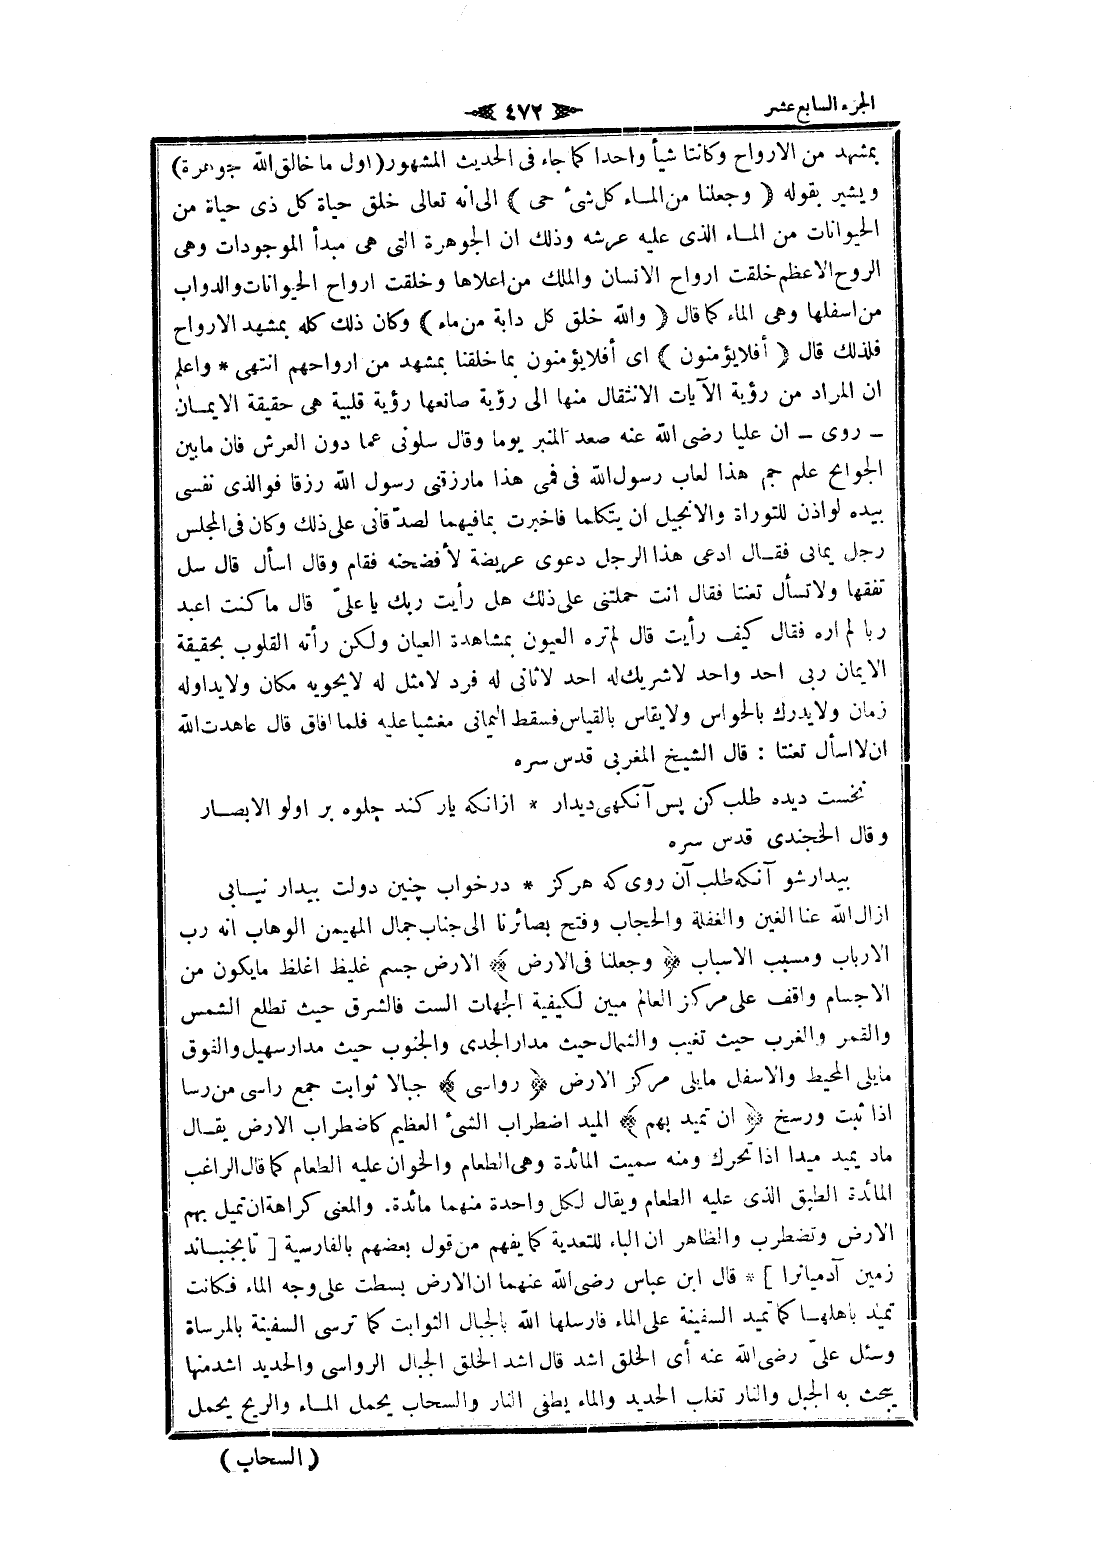 الجزء السابع عشر
٤٧٢
بمشهد من الارواح وكانتا شيأ واحدا كما جاء فى الحديث المشهور (اول ما خالق الله جوهرة)
ويشير بقوله ﴿ وجعلنا من المـاء كل شئ حى ﴾ الى انه تعالى خلق حياة كل ذى حياة من
الحيوانات من المـاء الذى عليه عرشه وذلك ان الجوهرة التى هى مبدأ الموجودات وهى
الروح الاعظم خلقت ارواح الانسان والملك من اعلاها وخلقت ارواح الحيوانات والدواب
من اسفلها وهى الماء كما قال ﴿ والله خلق كل دابة من ماء ﴾ وكان ذلك كله بمشهد الارواح
فلذلك قال ﴿ أفلا يؤمنون ﴾ اى أفلا يؤمنون بما خلقنا بمشهد من ارواحهم انتهى * واعلم
ان المراد من رؤية الآيات الانتقال منها الى رؤية صانعها رؤية قلبية هى حقيقة الايمـان
ـ روى ـ ان عليا رضى الله عنه صعد المنبر يوما وقال سلونى عما دون العرش فان مابين
الجوانح علم جم هذا لعاب رسول الله فى فمى هذا مارزقنى رسول الله رزقا فوالذى نفسى
بيده لو اذن للتوراة والانجيل ان يتكلما فاخبرت بمافيهما لصدّقانى على ذلك وكان فى المجلس
رجل يمانى فقـال ادعى هذا الرجل دعوى عريضة لأفضحنه فقام وقال اسأل قال سل
تفقها ولاتسأل تعنتا فقال انت حملتنى على ذلك هل رأيت ربك يا علىّ قال ماكنت اعبد
ربا لم اره فقال كيف رأيت قال لم تره العيون بمشاهدة العيان ولكن رأته القلوب بحقيقة
الايمان ربى احد واحد لاشريك له احد لاثانى له فرد لامثل له لايحويه مكان ولايداوله
زمان ولايدرك بالحواس ولايقاس بالقياس فسقط اليمانى مغشيا عليه فلما افاق قال عاهدت الله
ان لا اسأل تعنتا : قال الشيخ المغربى قدس سره
نخست ديده طلب كن پس آنكهى ديدار * ازانكه يار كند جلوه بر اولو الابصـار
وقال الخجندى قدس سره
بيدار شو آنكه طلب آن روى كه هركز * درخواب چنين دولت بيدار نيـابى
ازال الله عنا الغين والغفلة والحجاب وفتح بصائرنا الى جناب جمال المهيمن الوهاب انه رب
الارباب ومسبب الاسباب ﴿ وجعلنا فى الارض ﴾ الارض جسم غليظ اغلظ مايكون من
الاجسام واقف على مركز العالم مبين لكيفية الجهات الست فالشرق حيث تطلع الشمس
والقمر والغرب حيث تغيب والشمال حيث مدار الجدى والجنوب حيث مدار سهيل والفوق
مايلى المحيط والاسفل مايلى مركز الارض ﴿ رواسى ﴾ جبالا ثوابت جمع راسى من رسا
اذا ثبت ورسخ ﴿ ان تميد بهم ﴾ الميد اضطراب الشئ العظيم كاضطراب الارض يقـال
ماد يميد ميدا اذا تحرك ومنه سميت المائدة وهى الطعام والخوان عليه الطعام كما قال الراغب
المائدة الطبق الذى عليه الطعام ويقال لكل واحدة منهما مائدة. والمعنى كراهة ان تميل بهم
الارض وتضطرب والظاهر ان الباء للتعدية كما يفهم من قول بعضهم بالفارسية [ تا بجنبـاند
زمين آدميانرا ] * قال ابن عباس رضى الله عنهما ان الارض بسطت على وجه الماء فكانت
تميد باهلهـا كما تميد السفينة على الماء فارسلها الله بالجبال الثوابت كما ترسى السفينة بالمرساة
وسئل علىّ رضى الله عنه أى الخلق اشد قال اشد الخلق الجبال الرواسى والحديد اشد منها
ينحت به الجبل والنار تغلب الحديد والماء يطفى النار والسحاب يحمل المـاء والريح يحمل
( السحاب )